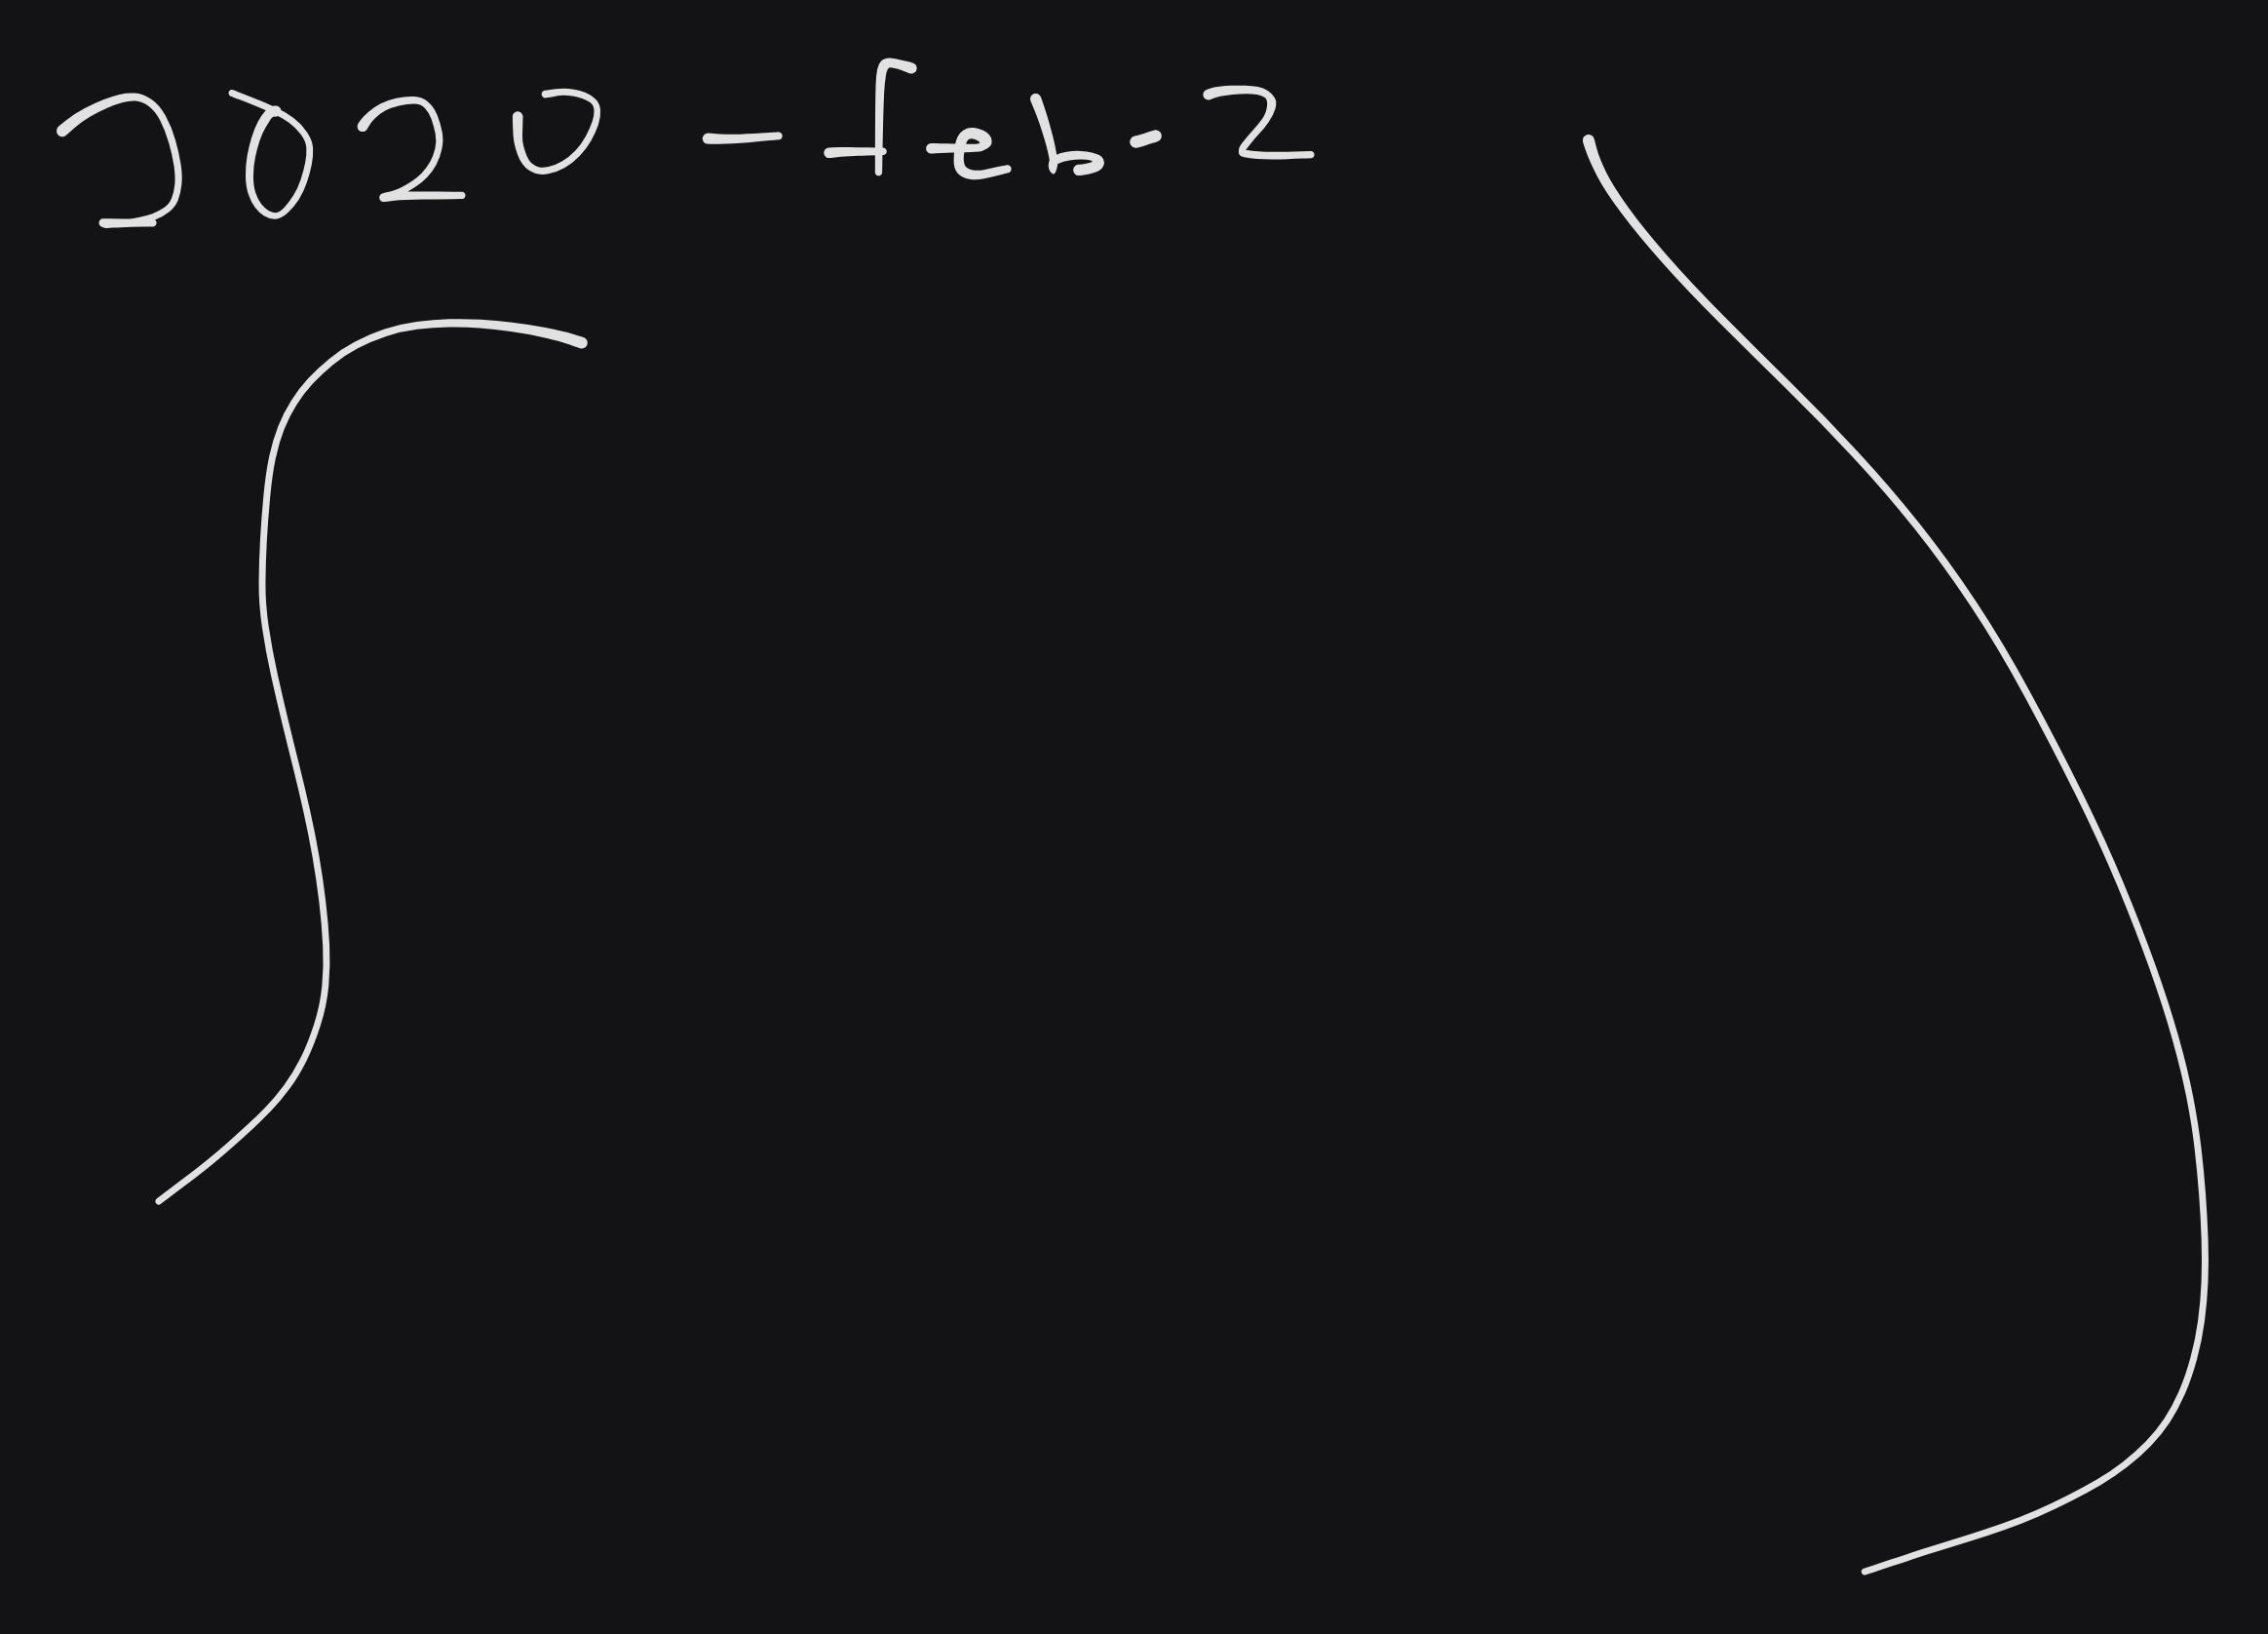 2020 - feb - 2